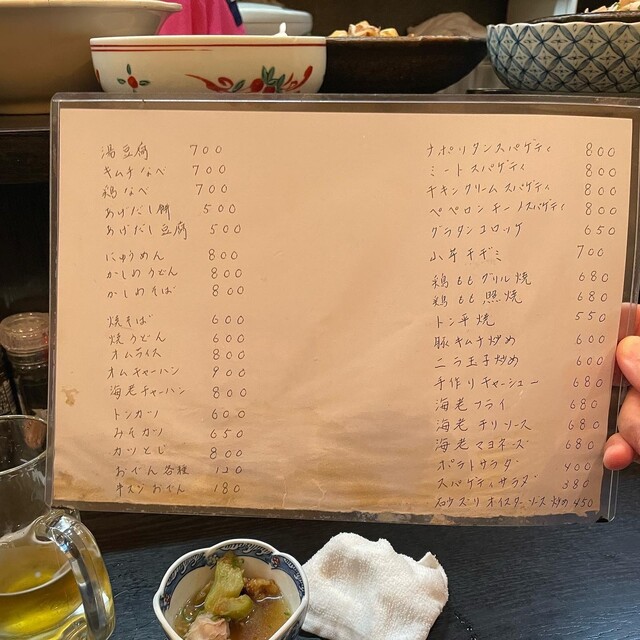 湯豆腐 700
キムチなべ 700
鶏なべ 700
あげだし餅 500
あげだし豆腐 500
にゅうめん 800
かしわうどん 800
かしわそば 800
焼そば 600
焼うどん 600
オムライス 800
オムチャーハン 900
海老チャーハン 800
トンカツ 600
みそカツ 650
カツとじ 800
おでん各種 120
牛スジおでん 180
ナポリタンスパゲティ 800
ミートスパゲティ 800
チキンクリームスパゲティ 800
ペペロンチーノスパゲティ 800
グラタンコロッケ 650
山芋チヂミ 700
鶏ももグリル焼 680
鶏もも照焼 680
トン平焼 550
豚キムチ炒め 600
ニラ玉子炒め 600
手作りチャーシュー 680
海老フライ 680
海老チリソース 680
海老マヨネーズ 680
ポテトサラダ 400
スパゲティサラダ 380
ズリオイスターソース炒め 450